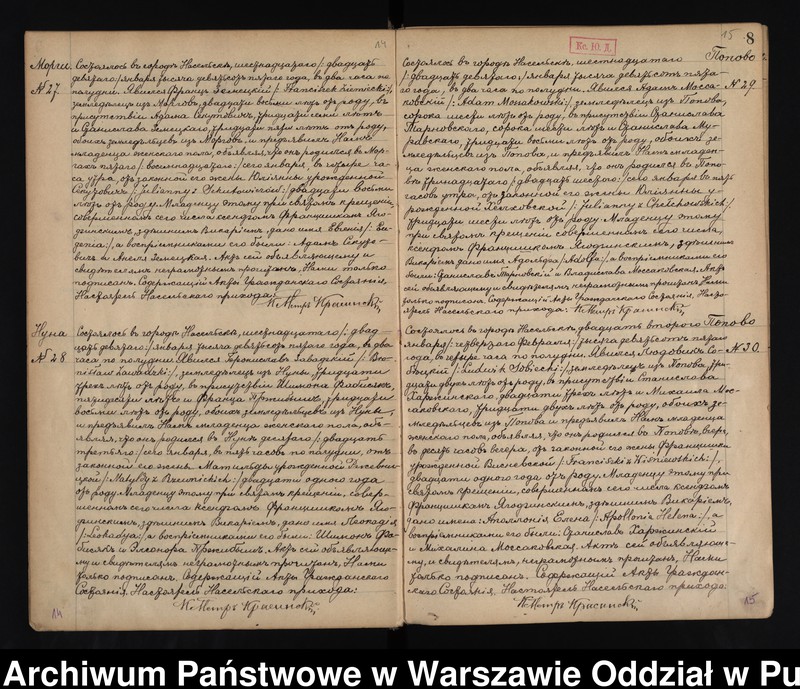 14
Морги
№ 27
Состоялось въ городѣ Насельскѣ, шестнадцатаго /: двадцать
девятаго:/ января тысяча девятьсотъ пятаго года, въ два часа по
полудни. Явился Францъ Зелнецкій /: Franciszek
земледѣлецъ изъ Морговъ, двадцати восьми лѣтъ отъ роду, въ
присутствіи Адама Скутовичъ, тридцати семи лѣтъ
и Станислава Зелнецкаго, тридцати пяти лѣтъ отъ роду,
обоихъ земледѣльцевъ изъ Морговъ, и предъявилъ Намъ
младенца женскаго пола, объявляя, что онъ родился въ Мор-
гахъ пятаго /: восемнадцатаго:/ сего января, въ четыре ча-
са утра, отъ законной его жены Юліянны урожденной
Скутовичъ /: Julianny z Skutowiczów:/ двадцати восьми
лѣтъ отъ роду. Младенцу этому при святомъ крещеніи,
совершенномъ сего числа ксендзомъ Францишкомъ Яго-
дзинскимъ, здѣшнимъ Викаріемъ, дано имя Евгенія /: Eu-
genia:/, а воспріемниками его были: Адамъ Скуто-
вичъ и Анеля Зелнецкая. Актъ сей объявляющему и
свидѣтелямъ неграмотнымъ прочитанъ, Нами только
подписанъ. Содержащій Акты Гражданскаго Состоянія,
Настоятель Насельскаго прихода:
Кс Петръ Красинскій
Нуна
№ 28
Состоялось въ городѣ Насельскѣ, шестнадцатаго /: двад-
цать девятаго:/ января тысяча девятьсотъ пятаго года, въ два
часа по полудни. Явился Брониславъ Завадзкій /: Bro-
nisław Zawadzki:/, земледѣлецъ изъ Нуны, тридцати
трехъ лѣтъ отъ роду, въ присутствіи Шимона Фабисякъ,
пятидесяти лѣтъ и Франца тридцати
восьми лѣтъ отъ роду, обоихъ земледѣльцевъ изъ Нуны,
и предъявилъ Намъ младенца женскаго пола, объ-
являя, что онъ родился въ Нунѣ десятаго /: двадцать
третьяго:/ сего января, въ пять часовъ по полудни, отъ
законной его жены Матильды урожденной
/: Matyldy z двадцати одного года
отъ роду. Младенцу этому при святомъ крещеніи, совер-
шенномъ сего числа Ксендзомъ Францишкомъ Яго-
дзинскимъ, здѣшнимъ Викаріемъ, дано имя Леокадія
/: Leokadya:/, а воспріемниками его были: Шимонъ Фа-
бисякъ и Элеонора Актъ сей объявляюще-
му и свидѣтелямъ неграмотнымъ прочитанъ, Нами
только подписанъ. Содержащій Акты Гражданскаго
Состоянія, Настоятель Насельскаго прихода:
Кс Петръ Красинскій
14
15
8
Кс. Ю. Д.
Попово
№ 29
Состоялось въ городѣ Насельскѣ, шестнадцатаго
/: двадцать девятаго:/ января тысяча девятьсотъ пята-
го года, въ два часа по полудни. Явился Адамъ Мосса-
ковскій /: Adam Mossakowski:/, земледѣлецъ изъ Попова,
сорока шести лѣтъ отъ роду, въ присутствіи Станислава
Тарновскаго, сорока шести лѣтъ и Станислава Му-
равскаго, тридцати восьми лѣтъ отъ роду, обоихъ зе-
мледѣльцевъ изъ Попова, и предъявилъ Намъ младен-
ца женскаго пола, объявляя, что онъ родился въ Попо-
вѣ тринадцатаго /: двадцать шестого:/ сего января въ пять
часовъ утра, отъ законной его жены Юліянны у-
рожденной Хелховской /: Julianny z Chełchowskich:/
тридцати шести лѣтъ отъ роду. Младенцу этому
при святомъ крещеніи совершенномъ сего числа,
ксендзомъ Францишкомъ Ягодзинскимъ, здѣшнимъ
Викаріемъ дано имя Адольфа /: Adolfa:/, а воспріемниками его
были: Станиславъ Тарновскій и Владислава Моссаковская. Актъ
сей объявляющему и свидѣтелямъ неграмотнымъ прочитанъ Нами
только подписанъ. Содержащій Акты Гражданскаго Состоянія, Насто-
ятель Насельскаго прихода: Кс Петръ Красинскій
Попово
№ 30
Состоялось въ городѣ Насельскѣ, двадцать второго
января /: четвертаго февраля:/ тысяча девятьсотъ пятаго
года, въ четыре часа по полудни. Явился Людовикъ Со-
бецкій /: Ludwik Sobiecki:/ земледѣлецъ изъ Попова, три-
дцати двухъ лѣтъ отъ роду, въ присутствіи Станислава
Харжинскаго, двадцати трехъ лѣтъ и Михаила Мос-
саковскаго, тридцати двухъ лѣтъ отъ роду, обоихъ зе-
мледѣльцевъ изъ Попова и предъявилъ Намъ младенца
женскаго пола, объявляя, что онъ родился въ Поповѣ, вчера,
въ десять часовъ вечера, отъ законной его жены Францишки
урожденной Висневской /: Franciszki z Wiśniewskich:/,
двадцати одного года отъ роду. Младенцу этому при
святомъ крещеніи, совершенномъ сего числа ксендзомъ
Францишкомъ Ягодзинскимъ, здѣшнимъ Викаріемъ,
дано имена: Аполлонія, Елена /: Apollonia Helena:/, а
воспріемниками его были: Станиславъ Харжинскій
и Михалина Моссаковская. Актъ сей объявляюще-
му, и свидѣтелямъ, неграмотнымъ прочитанъ, Нами
только подписанъ. Содержащій Акты Граждан-
скаго Состоянія. Настоятель Насельскаго прихода:
Кс Петръ Красинскій
15
Archiwum Państwowe w Warszawie Oddział w Pu